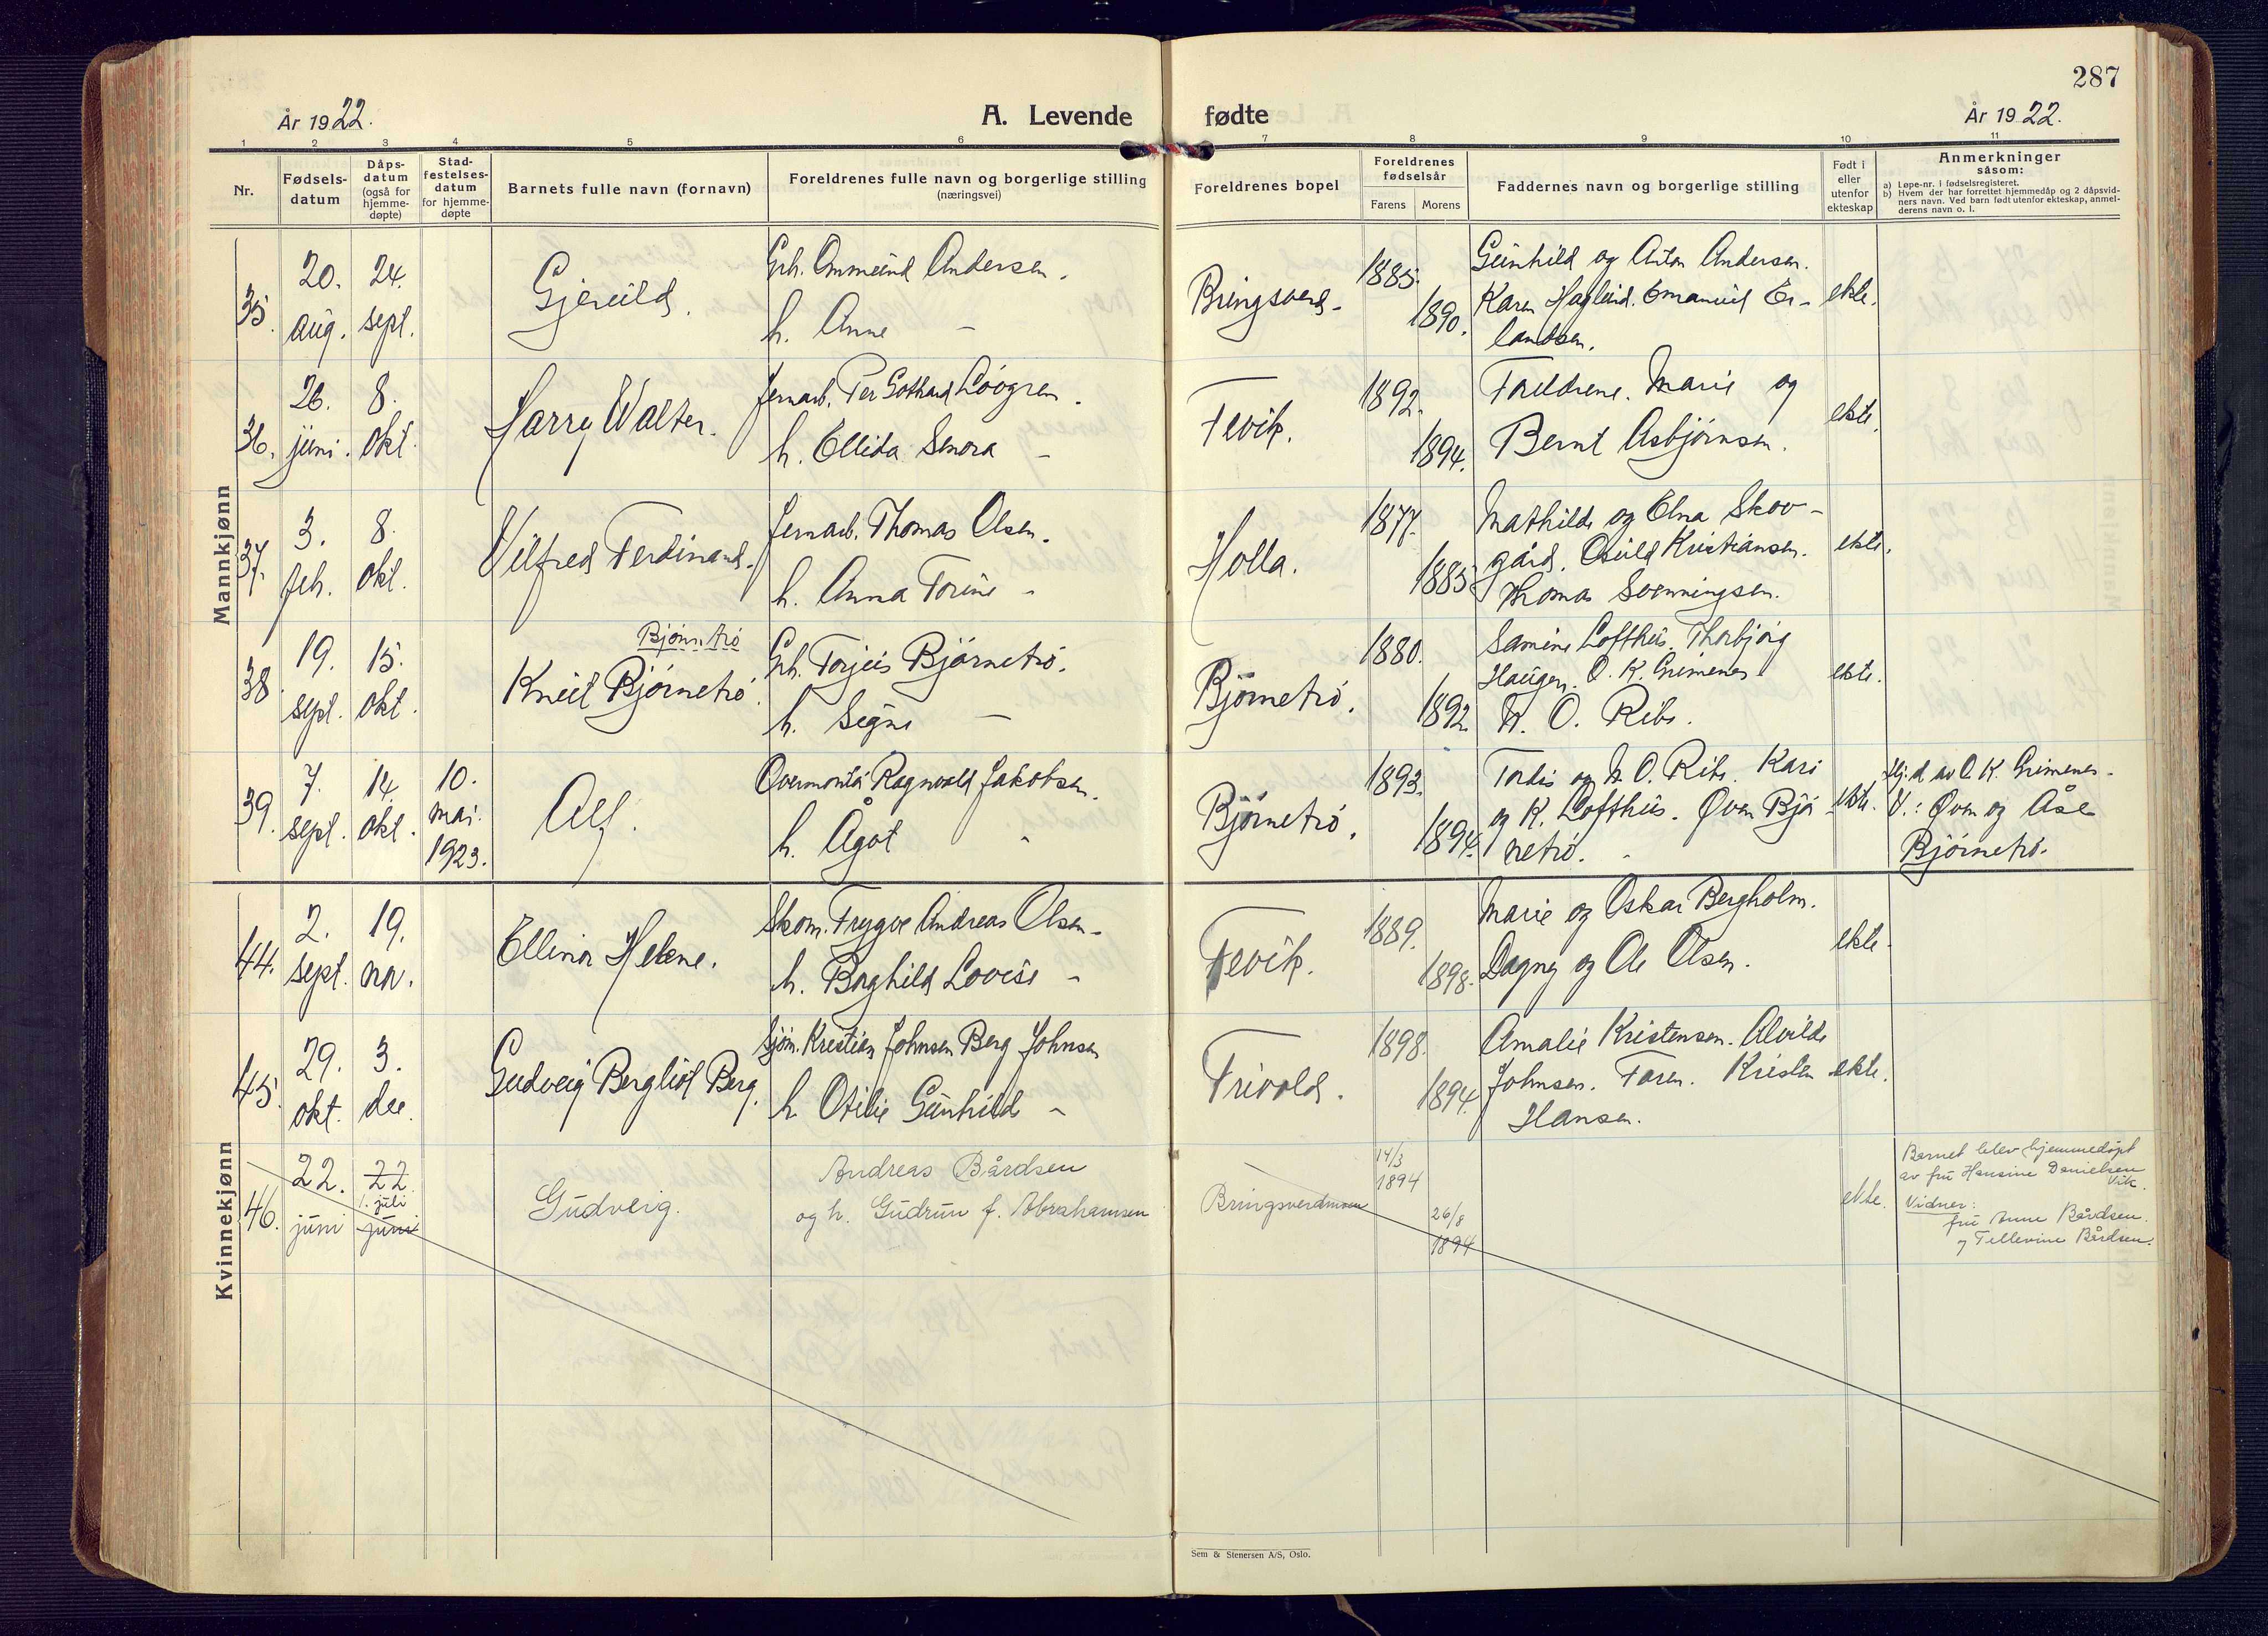 287
År 1922.
A. Levende
fødte
År 1922.
1 2 3 4 5 6 7 8 9 10 11
Nr.
Fødsels-
datum
Dåps-
datum
(også for
hjemme-
døpte)
Stad-
festelses-
datum
for hjemme-
døpte
Barnets fulle navn (fornavn)
Foreldrenes fulle navn og borgerlige stilling
(næringsvei)
Foreldrenes bopel
Foreldrenes
fødselsår
Farens
Morens
Faddernes navn og borgerlige stilling
Født i
eller
utenfor
ekteskap
Anmerkninger
såsom:
a) Løpe-nr. i fødselsregisteret.
b) Hvem der har forrettet hjemmedåp og 2 dåpsvid-
ners navn. Ved barn født utenfor ekteskap, anmel-
derens navn o. l.
Mannkjønn
35.
20.
aug.
24.
sept.
Gjeruld.
Grh. Ommund Andersen.
h. Anne -
Bringsverd-
1885.
1890.
Gunhild og Anton Andersen.
Karen Haglund. Emanuel Er-
landsen.
ekte.
36.
26.
juni.
8.
okt.
Harry Walter.
Jernarb. Per Gotthard Lövgren.
h. Ellida Senora -
Fevik.
1892.
1894.
Foreldrene. Marie og
Bernt Asbjørnsen.
ekte.
37.
3.
feb.
8.
okt.
Vilfred Ferdinand.
Jernarb. Thomas Olsen.
h. Anna Torine -
Holla.
1877.
1885
Mathilde og Elna Skov-
gård. Osuld Kristiansen.
Thomas Svenningsen.
ekte.
38.
19.
sept.
15.
okt.
Bjørnetrø
Knut Bjørnetrø.
Grh. Torjus Bjørnetrø.
h. Signe -
Bjørnetrø.
1880.
1892.
Samine Lofthus. Thorbjørg
Haugen. O. K. Grimenes
N. O. Ribe.
ekte.
39.
7.
sept.
14.
okt.
10.
mai.
1923.
Alf.
Overmontø Ragnvald Jakobsen.
h. Ågot -
Bjørnetrø.
1893.
1894.
Tordis og N. O. Ribe. Kari
og K. Lofthus. Øvm Bjø-
netrø.
ekte.
Hj. d. av O. K. Grimenes.
V.: Øvm og Åse
Bjørnetrø.
Kvinnekjønn
44.
2.
sept.
19.
nov.
Ellinor Helene.
Skom. Trygve Andreas Olsen-
h. Borghild Lovise -
Fevik.
1889.
1898.
Marie og Oskar Bergholm.
Dagny og Ole Olsen.
ekte.
45.
29.
okt.
3.
des.
Gudveig Bergliot Berg.
Sjøm. Kristian Johnsen Berg Johnsen
h. Otilie Gunhild -
Trivolds.
1898.
1894.
Amalie Kristensen. Alvilde
Johnsen. Faren. Kristen
Hansen.
ekte.
46.
22.
juni
22
1. juli
juni
Gudveig.
Andreas Bårdsen
og h. Gudrun f. Abrahamsen
Bringsverdmoen
14/3
1894
26/8
1894
ekte.
Barnet blev hjemmedøpt
av fru Hansine Danielsen
Vik.
Vidner:
fru Anne Bårdsen.
" Tellevine Bårdsen.
Sem & Stenersen A/S, Oslo.